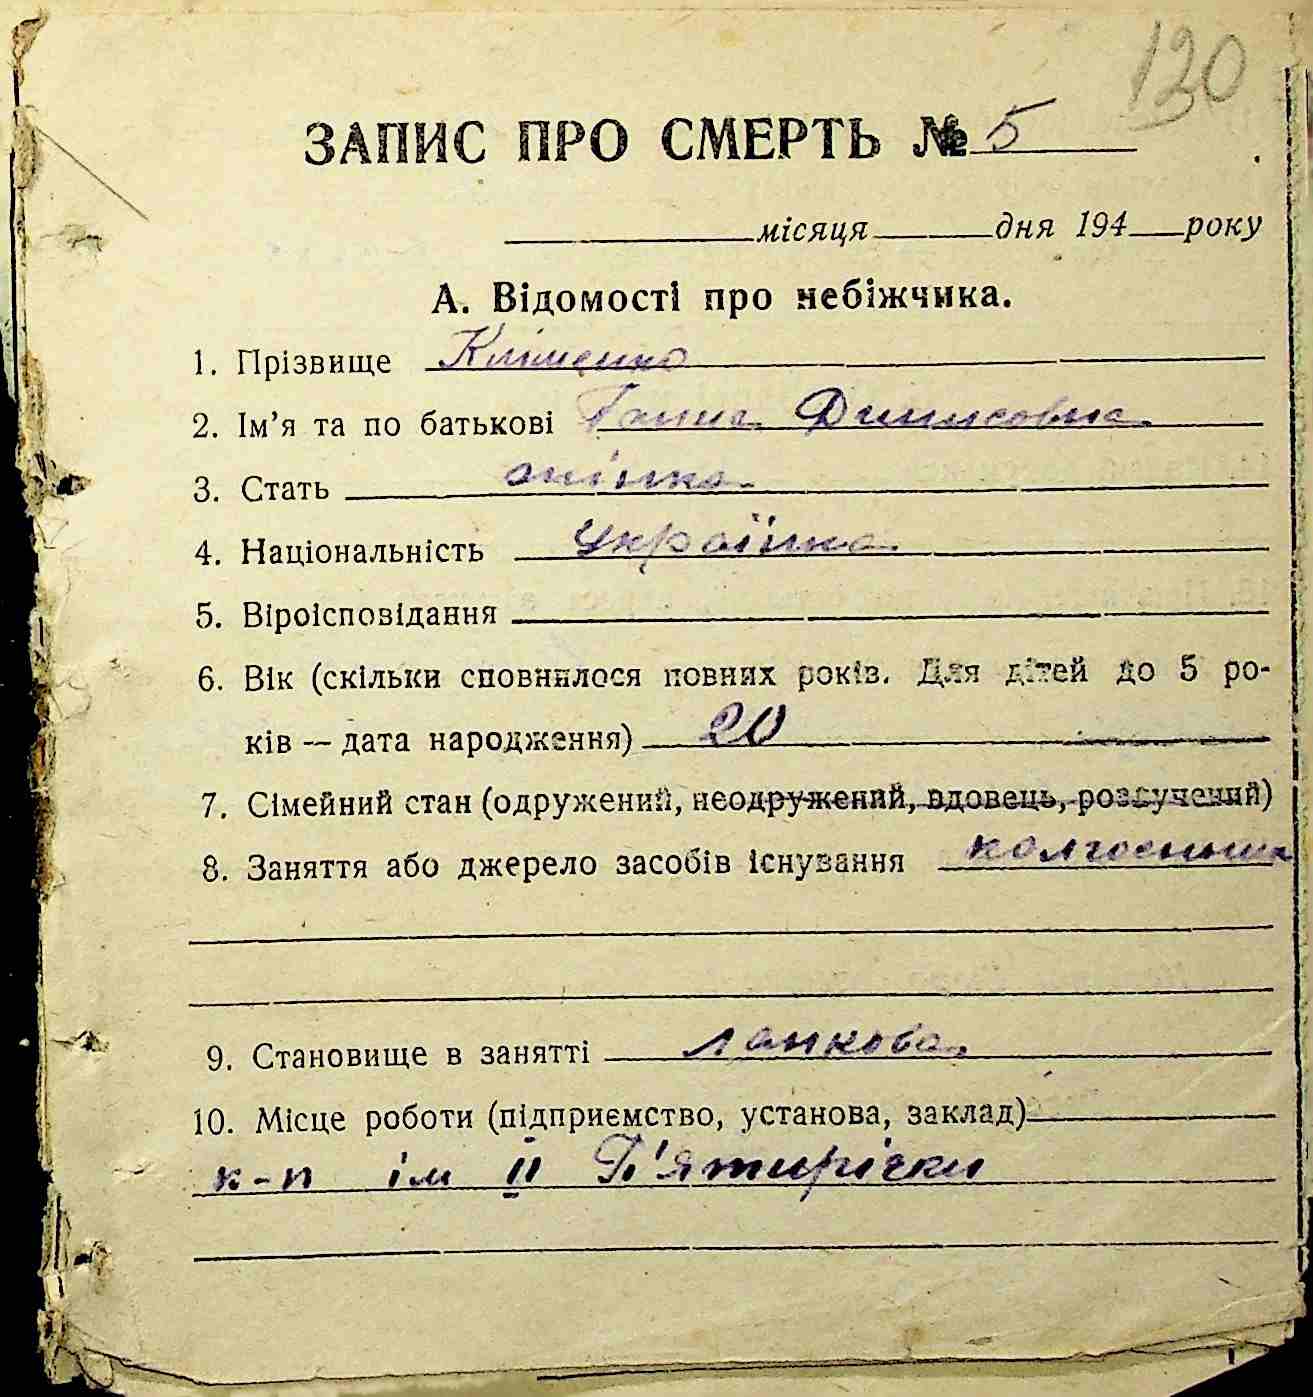 120
ЗАПИС ПРО СМЕРТЬ № 5
місяця дня 194 року
А. Відомості про небіжчика.
1. Прізвище Кліменко
2. Ім'я та по батькові Ганна Денисовна
3. Стать жінка
4. Національність Українка
5. Віроісповідання
6. Вік (скільки сповнилося повних років. Для дітей до 5 ро-
ків — дата народження) 20
7. Сімейний стан (одружений, неодружений, вдовець, розлучений)
8. Заняття або джерело засобів існування колгоспниця
9. Становище в занятті ланкова
10. Місце роботи (підприємство, установа, заклад)
к-п ім II П'ятирічки